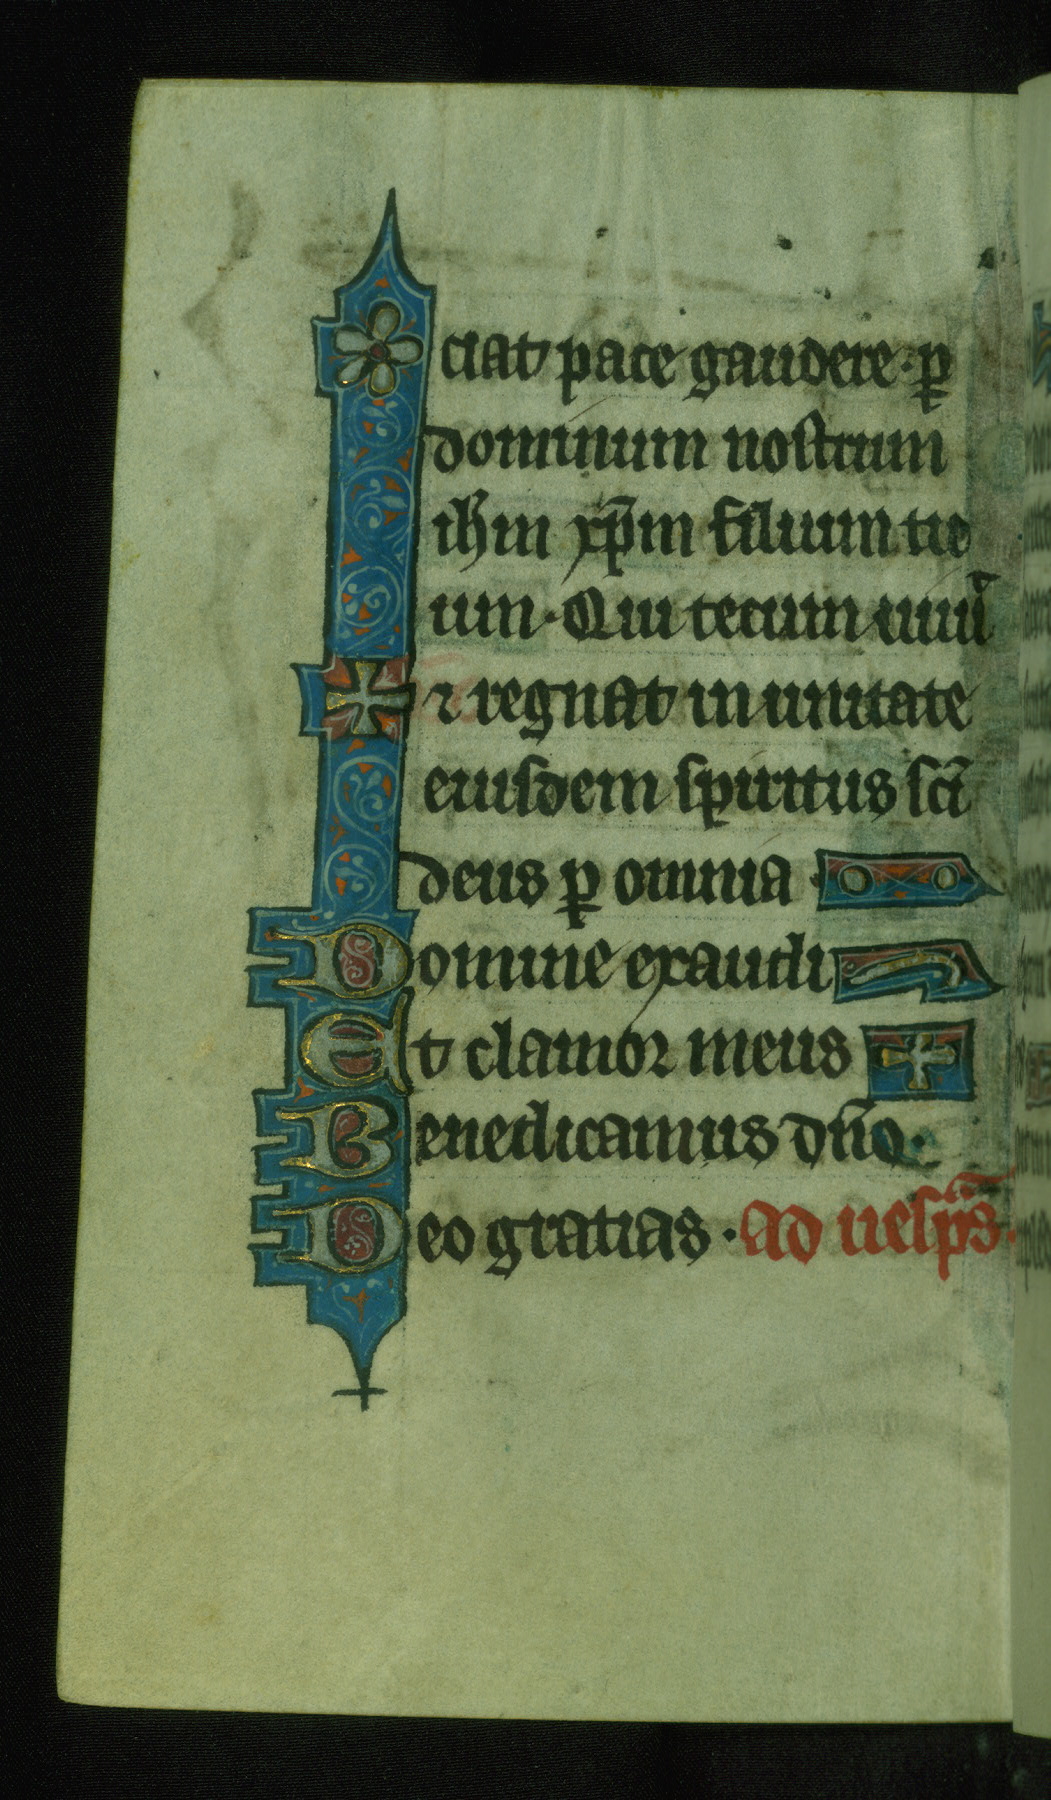 ciat pace gaudere · ꝑ
dominum nostrum
ih̅m xp̅m filium tu
um · Qui tecum uiuit̅
⁊ regnat in unitate
eiusdem spiritus sc̅i
deus ꝑ omnia
Domine exaudi
Et clamor meus
Benedicamus dn̅o ·
Deo gratias · Ad uesp̅s ·